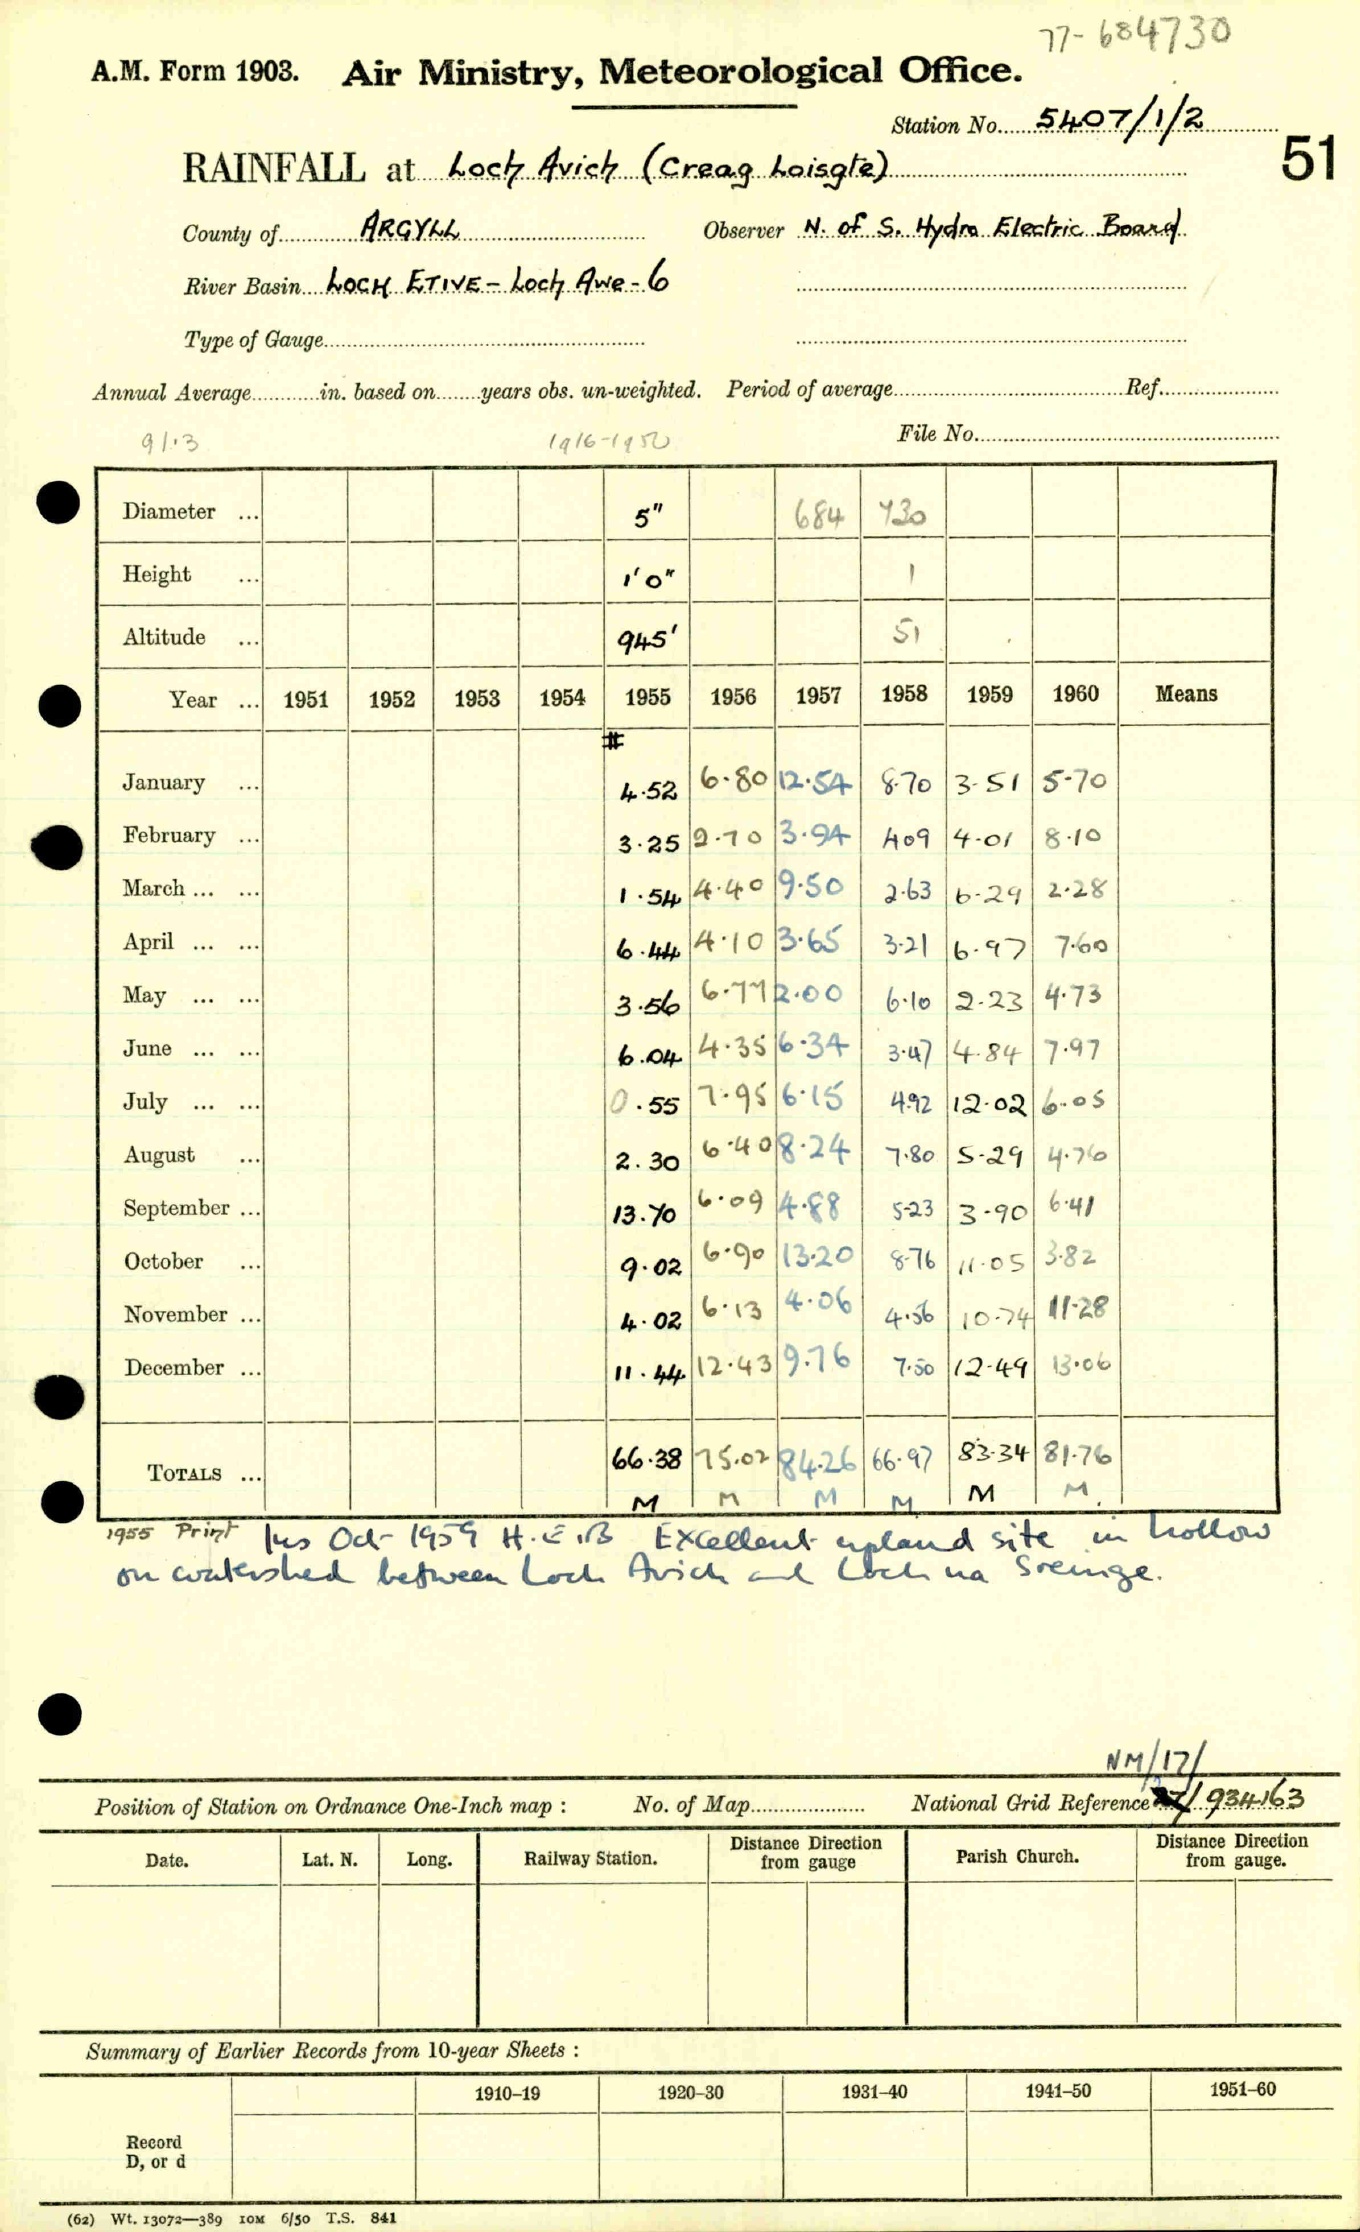 77-684730
A.M. Form 1903. Air Ministry, Meteorological Office.
Station No. 5407/1/2
51
RAINFALL at Loch Avich (Creag Loisgte)
County of ARGYLL Observer N. of S. Hydro Electric Board
River Basin LOCH ETIVE - Loch Awe - 6
Type of Gauge
Annual Average in. based on years obs. un-weighted. Period of average Ref.
91.3 1916-1950 File No.
Diameter ... 5" 684 730
Height ... 1'0" 1
Altitude ... 945' 51
Year ... 1951 1952 1953 1954 1955 1956 1957 1958 1959 1960 Means
#
January ... 4.52 6.80 12.54 8.70 3.51 5.70
February ... 3.25 2.70 3.94 4.09 4.01 8.10
March ... ... 1.54 4.40 9.50 2.63 6.29 2.28
April ... ... 6.44 4.10 3.65 3.21 6.97 7.60
May ... ... 3.56 6.77 2.00 6.10 2.23 4.73
June ... ... 6.04 4.35 6.34 3.47 4.84 7.97
July ... ... 0.55 7.95 6.15 4.92 12.02 6.05
August ... 2.30 6.40 8.24 7.80 5.29 4.76
September ... 13.70 6.09 4.88 5.23 3.90 6.41
October ... 9.02 6.90 13.20 8.76 11.05 3.82
November ... 4.02 6.13 4.06 4.56 10.74 11.28
December ... 11.44 12.43 9.76 7.50 12.49 13.06
TOTALS ... 66.38 75.02 84.26 66.97 83.34 81.76
M M M M M M
1955 Print Ins Oct 1959 H.E.B Excellent upland site in hollow
on watershed between Loch Avich and Loch na Sreinge.
NM/17/
Position of Station on Ordnance One-Inch map : No. of Map National Grid Reference 27/ 934163
Date. Lat. N. Long. Railway Station. Distance Direction from gauge Parish Church. Distance Direction from gauge.
Summary of Earlier Records from 10-year Sheets :
1910–19 1920–30 1931–40 1941–50 1951–60
Record
D, or d
(62) Wt. 13072—389 10M 6/50 T.S. 841